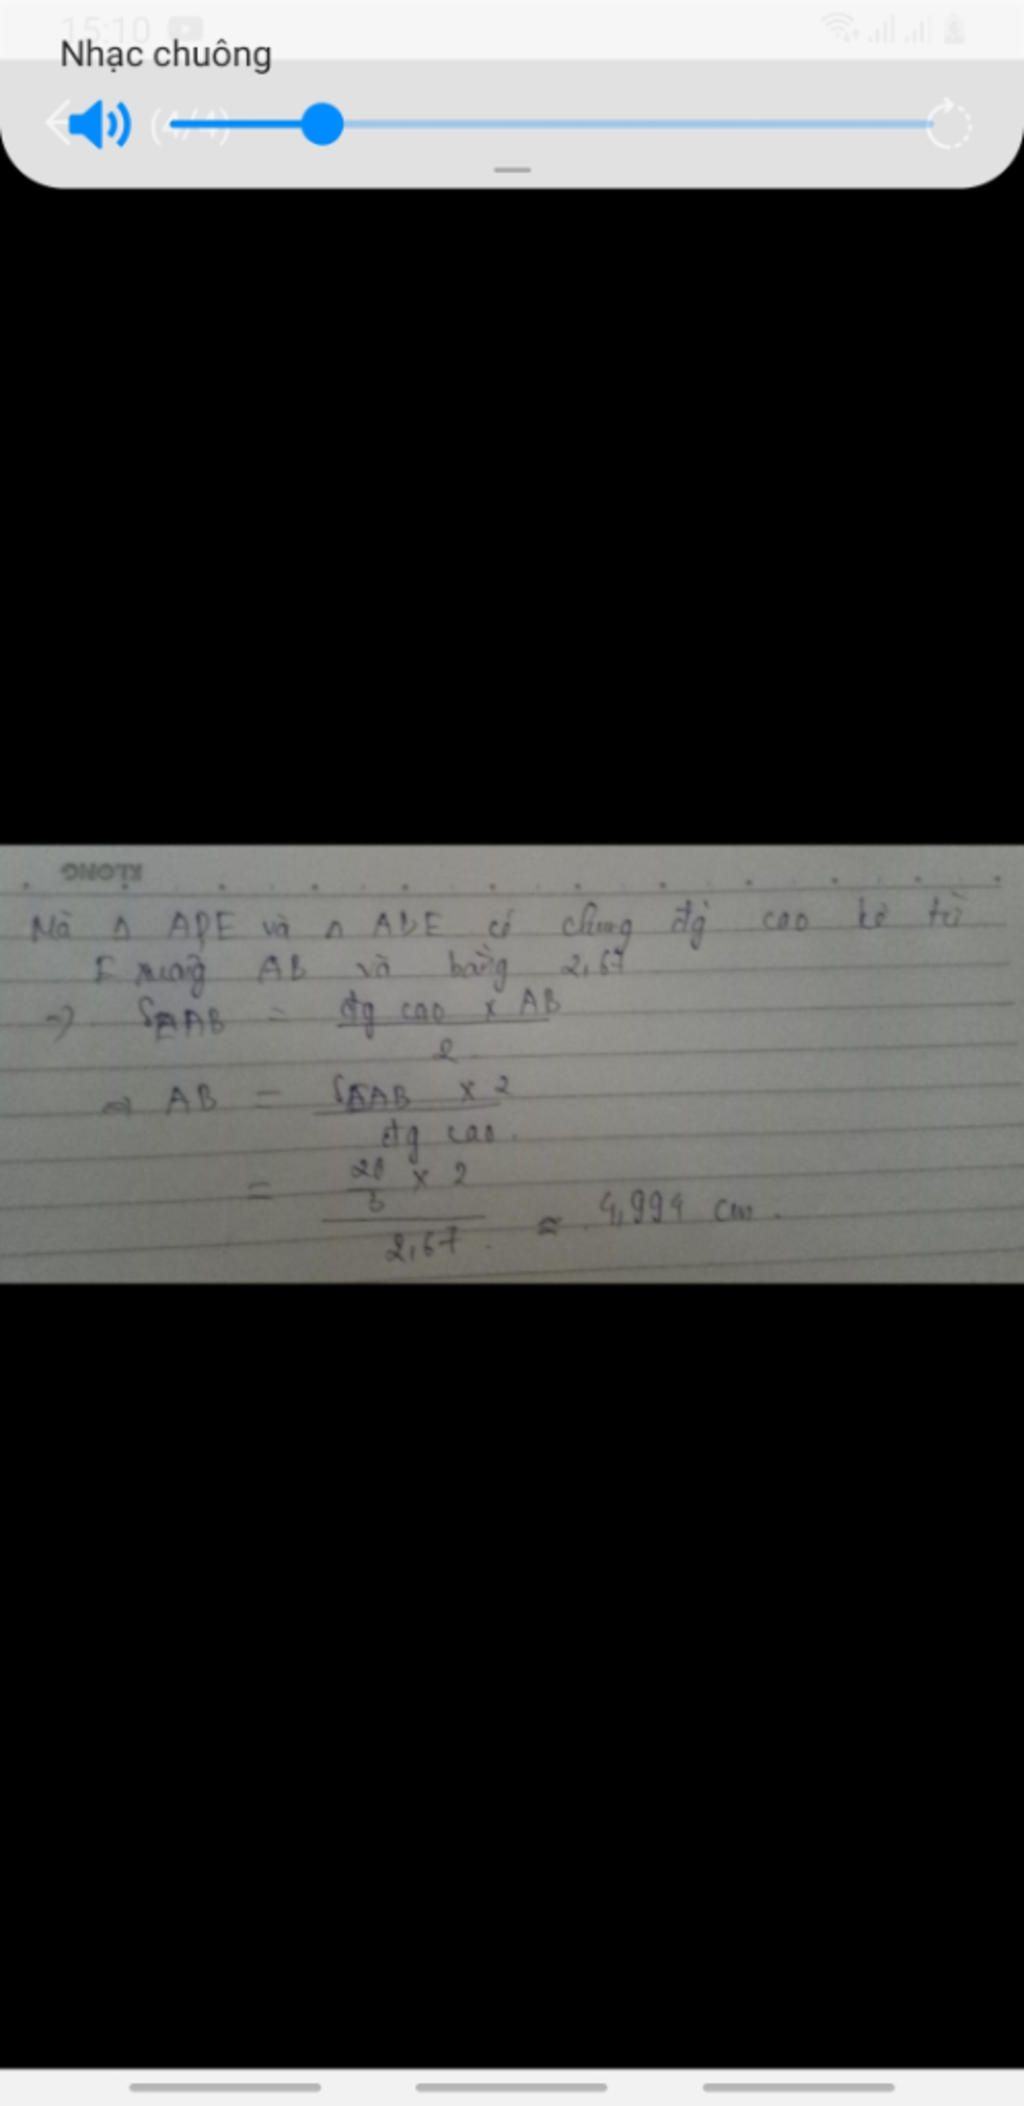 15:10
Nhạc chuông
(4/4)
KLONG
Mà Δ ADE và Δ ABE có chung đg cao kẻ từ
E xuống AB và bằng 2,67
=> SEAB = đg cao x AB
2
=> AB = SEAB x 2
đg cao.
= 20/3 x 2
2,67 ≈ 4,994 cm.